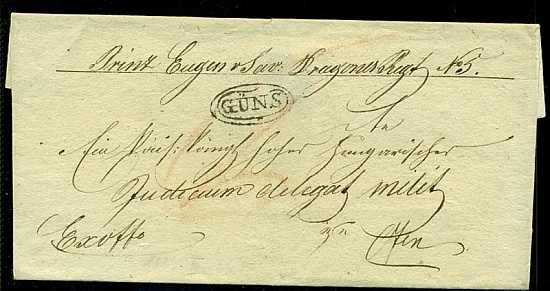 Prinz Eugen v Sav: Dragoner Regt N 5.
GÜNS
Ein kais: königl hoher Hungarischer
Judicium delegat milit
Exoffo zu Ofen